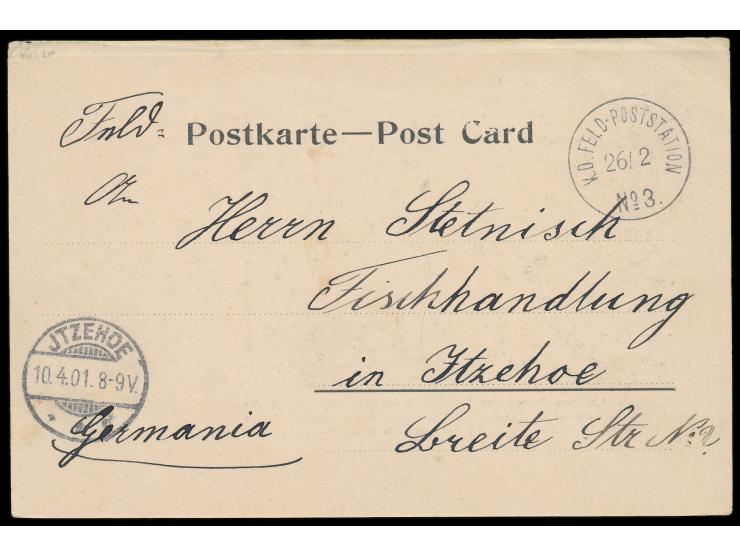 Feld= Postkarte—Post Card
K.D. FELD-POSTSTATION
26/2
No 3.
An
Herrn Stetnisch
Fischhandlung
in Itzehoe
JTZEHOE
10.4.01. 8-9V.
Germania
breite Str No